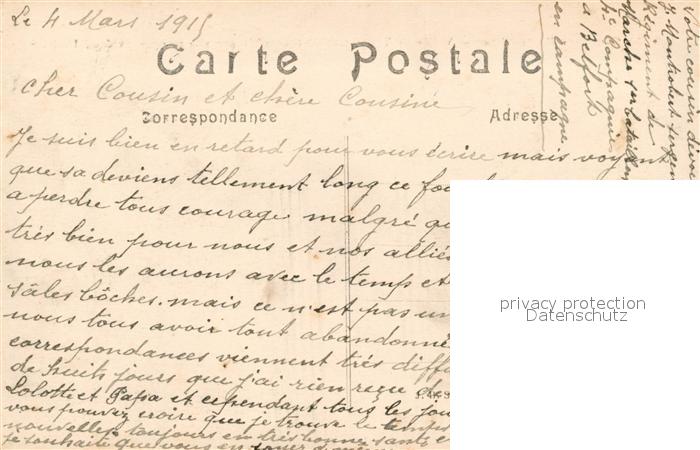 Le 4 Mars 1915
Carte Postale
Cher Cousin et chère Cousine
Correspondance
Adresse
Je suis bien en retard pour vous écrire mais voyant
que sa deviens tellement long ce
a perdre tous courage malgré
très bien pour nous et nos alliés
nous les aurons avec le temps et
sâles bôches. mais ce n'est pas un
nous tous avoir tout abandonné
correspondances viennent très diffi
de huits jours que j'ai rien reçu
Lolotte et Papa et cependant tous les jou
vous pouvez croire que je trouve le temps
nouvelles toujours en très bonne santé et
je souhaite que vous en
Votre cousin
Régiment de
Marche
Compagnie
a Belfort
en campagne
privacy protection
Datenschutz